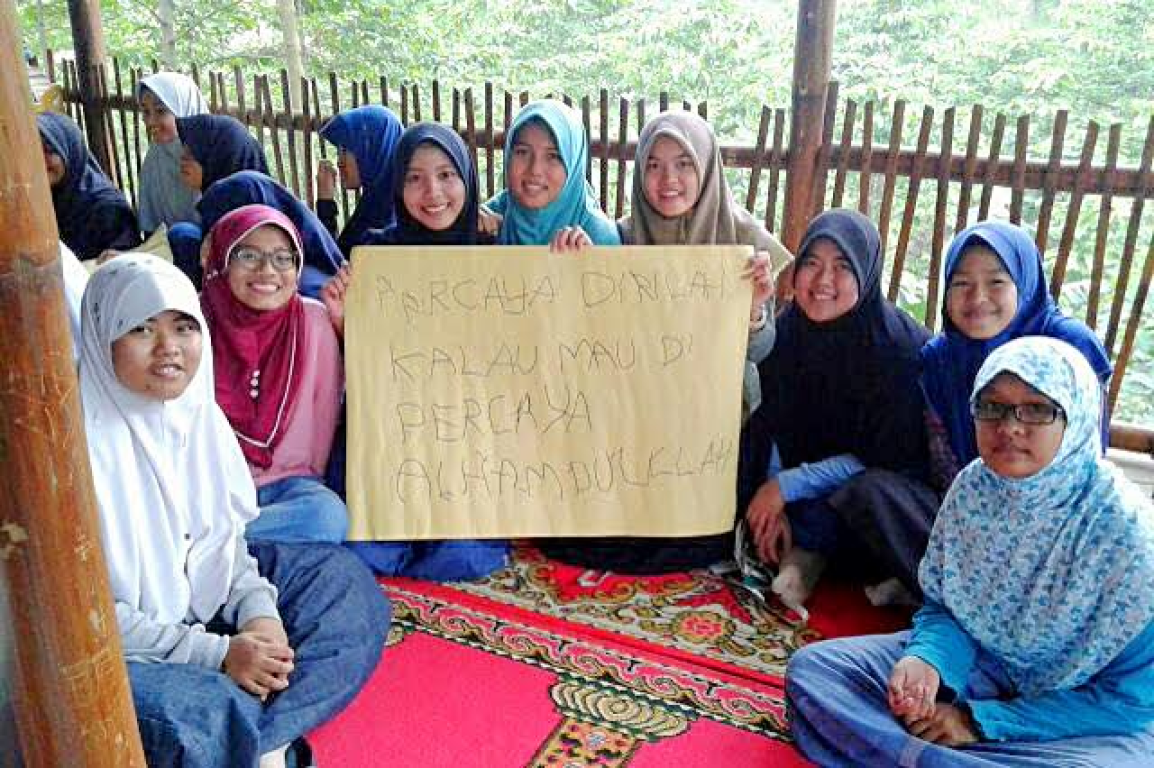 PERCAYA DIRILAH
KALAU MAU DI
PERCAYA
ALHAMDULELLAH